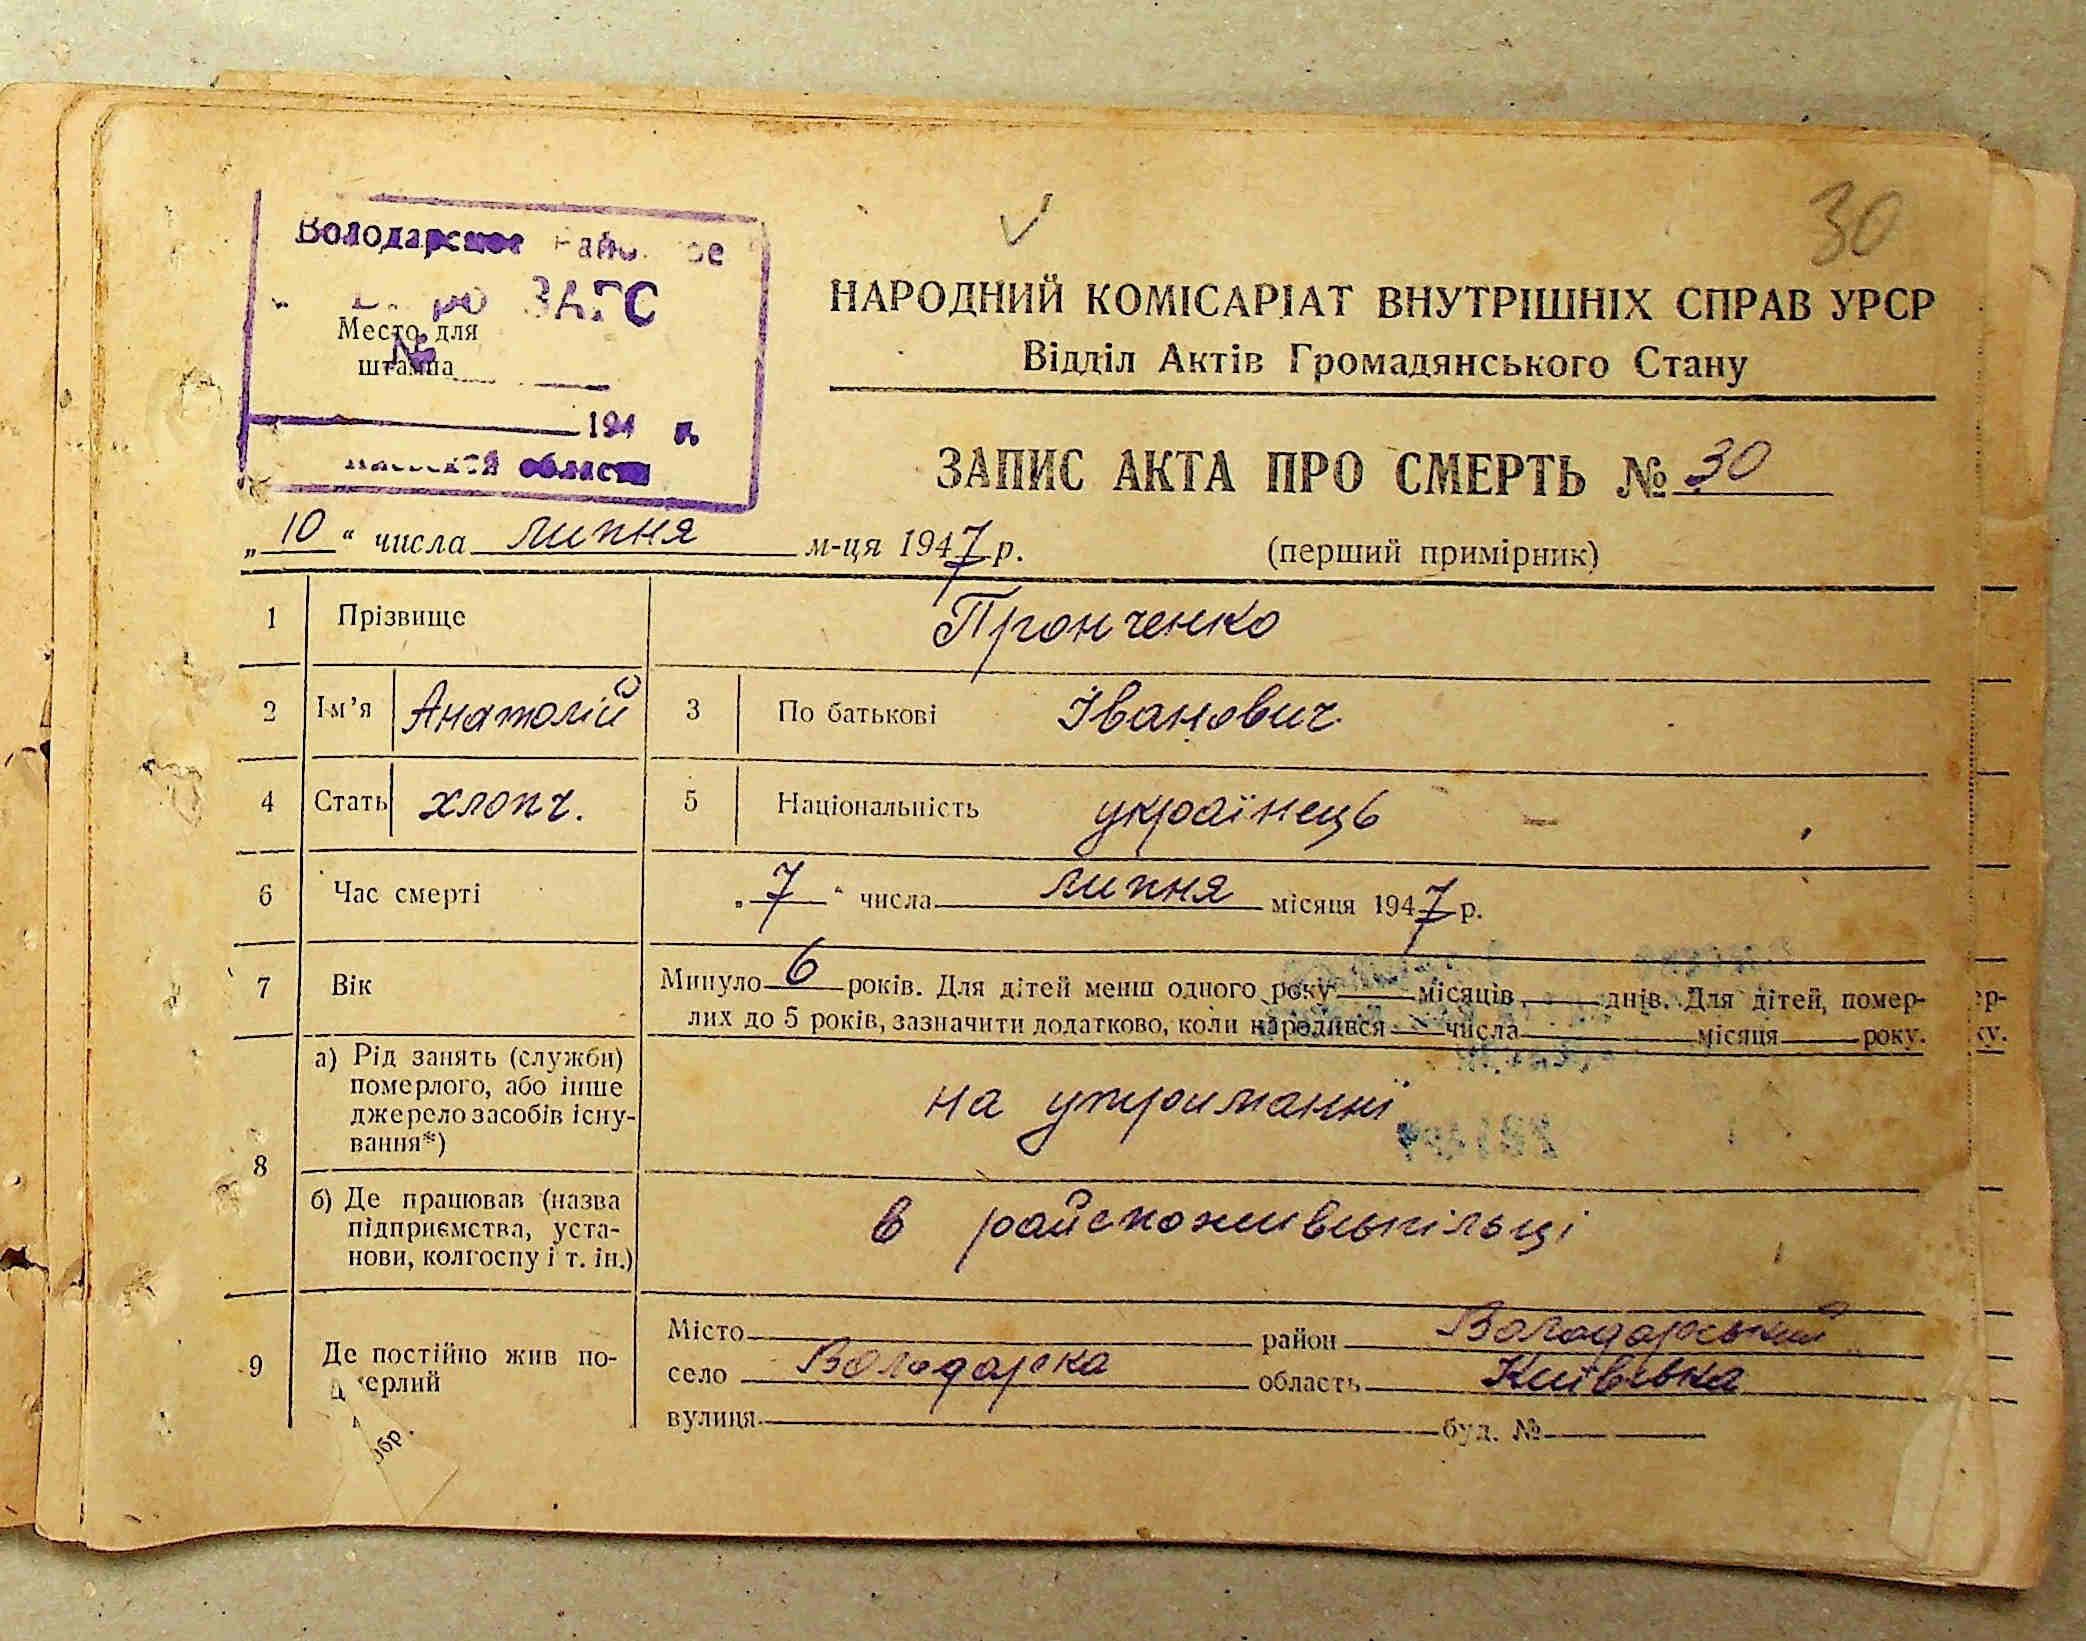 30
Володарское Рай
ЗАГС
Место для
штампа
№
194 г.
области
НАРОДНИЙ КОМІСАРІАТ ВНУТРІШНІХ СПРАВ УРСР
Відділ Актів Громадянського Стану
ЗАПИС АКТА ПРО СМЕРТЬ № 30
„10“ числа липня м-ця 1947 р. (перший примірник)
1 Прізвище Пронченко
2 Ім'я Анатолій 3 По батькові Іванович
4 Стать хлопч. 5 Національність українець
6 Час смерті „7“ числа липня місяця 1947 р.
7 Вік Минуло 6 років. Для дітей менш одного року місяців, днів. Для дітей, помер-
лих до 5 років, зазначити додатково, коли народився числа місяця року.
8 а) Рід занять (служби)
померлого, або інше
джерело засобів існу-
вання*)
на утриманні
б) Де працював (назва
підприємства, уста-
нови, колгоспу і т. ін.)
в
9 Де постійно жив по-
мерлий
Місто район Володарський
село Володарка область Київська
вулиця буд. №